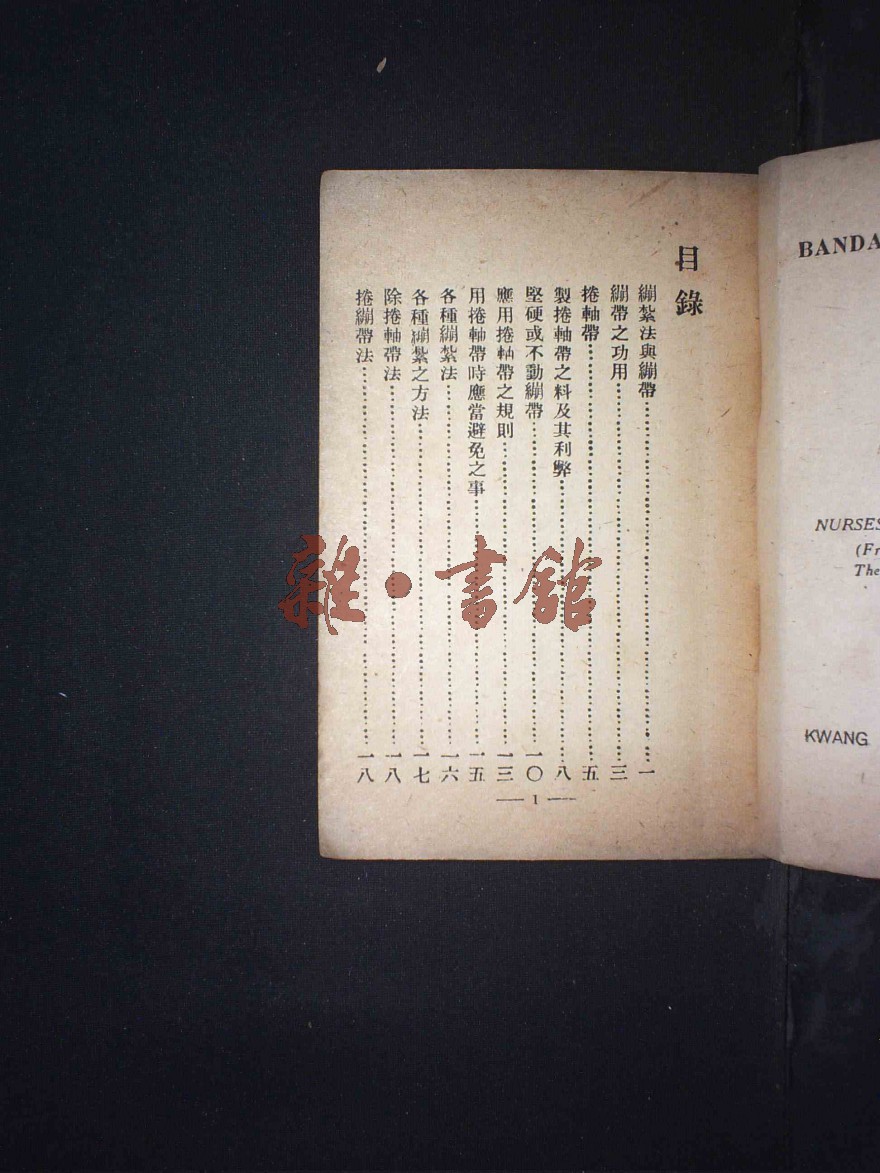 目錄
繃紮法與繃帶……一
繃帶之功用……三
捲軸帶……五
製捲軸帶之料及其利弊……八
堅硬或不動繃帶……一〇
應用捲軸帶之規則……一三
用捲軸帶時應當避免之事……一五
各種繃紮法……一六
各種繃紮之方法……一七
除捲軸帶法……一八
捲繃帶法……一八
— 1 —
BANDA
NURSES
(Fr
The
KWANG
雜·書館